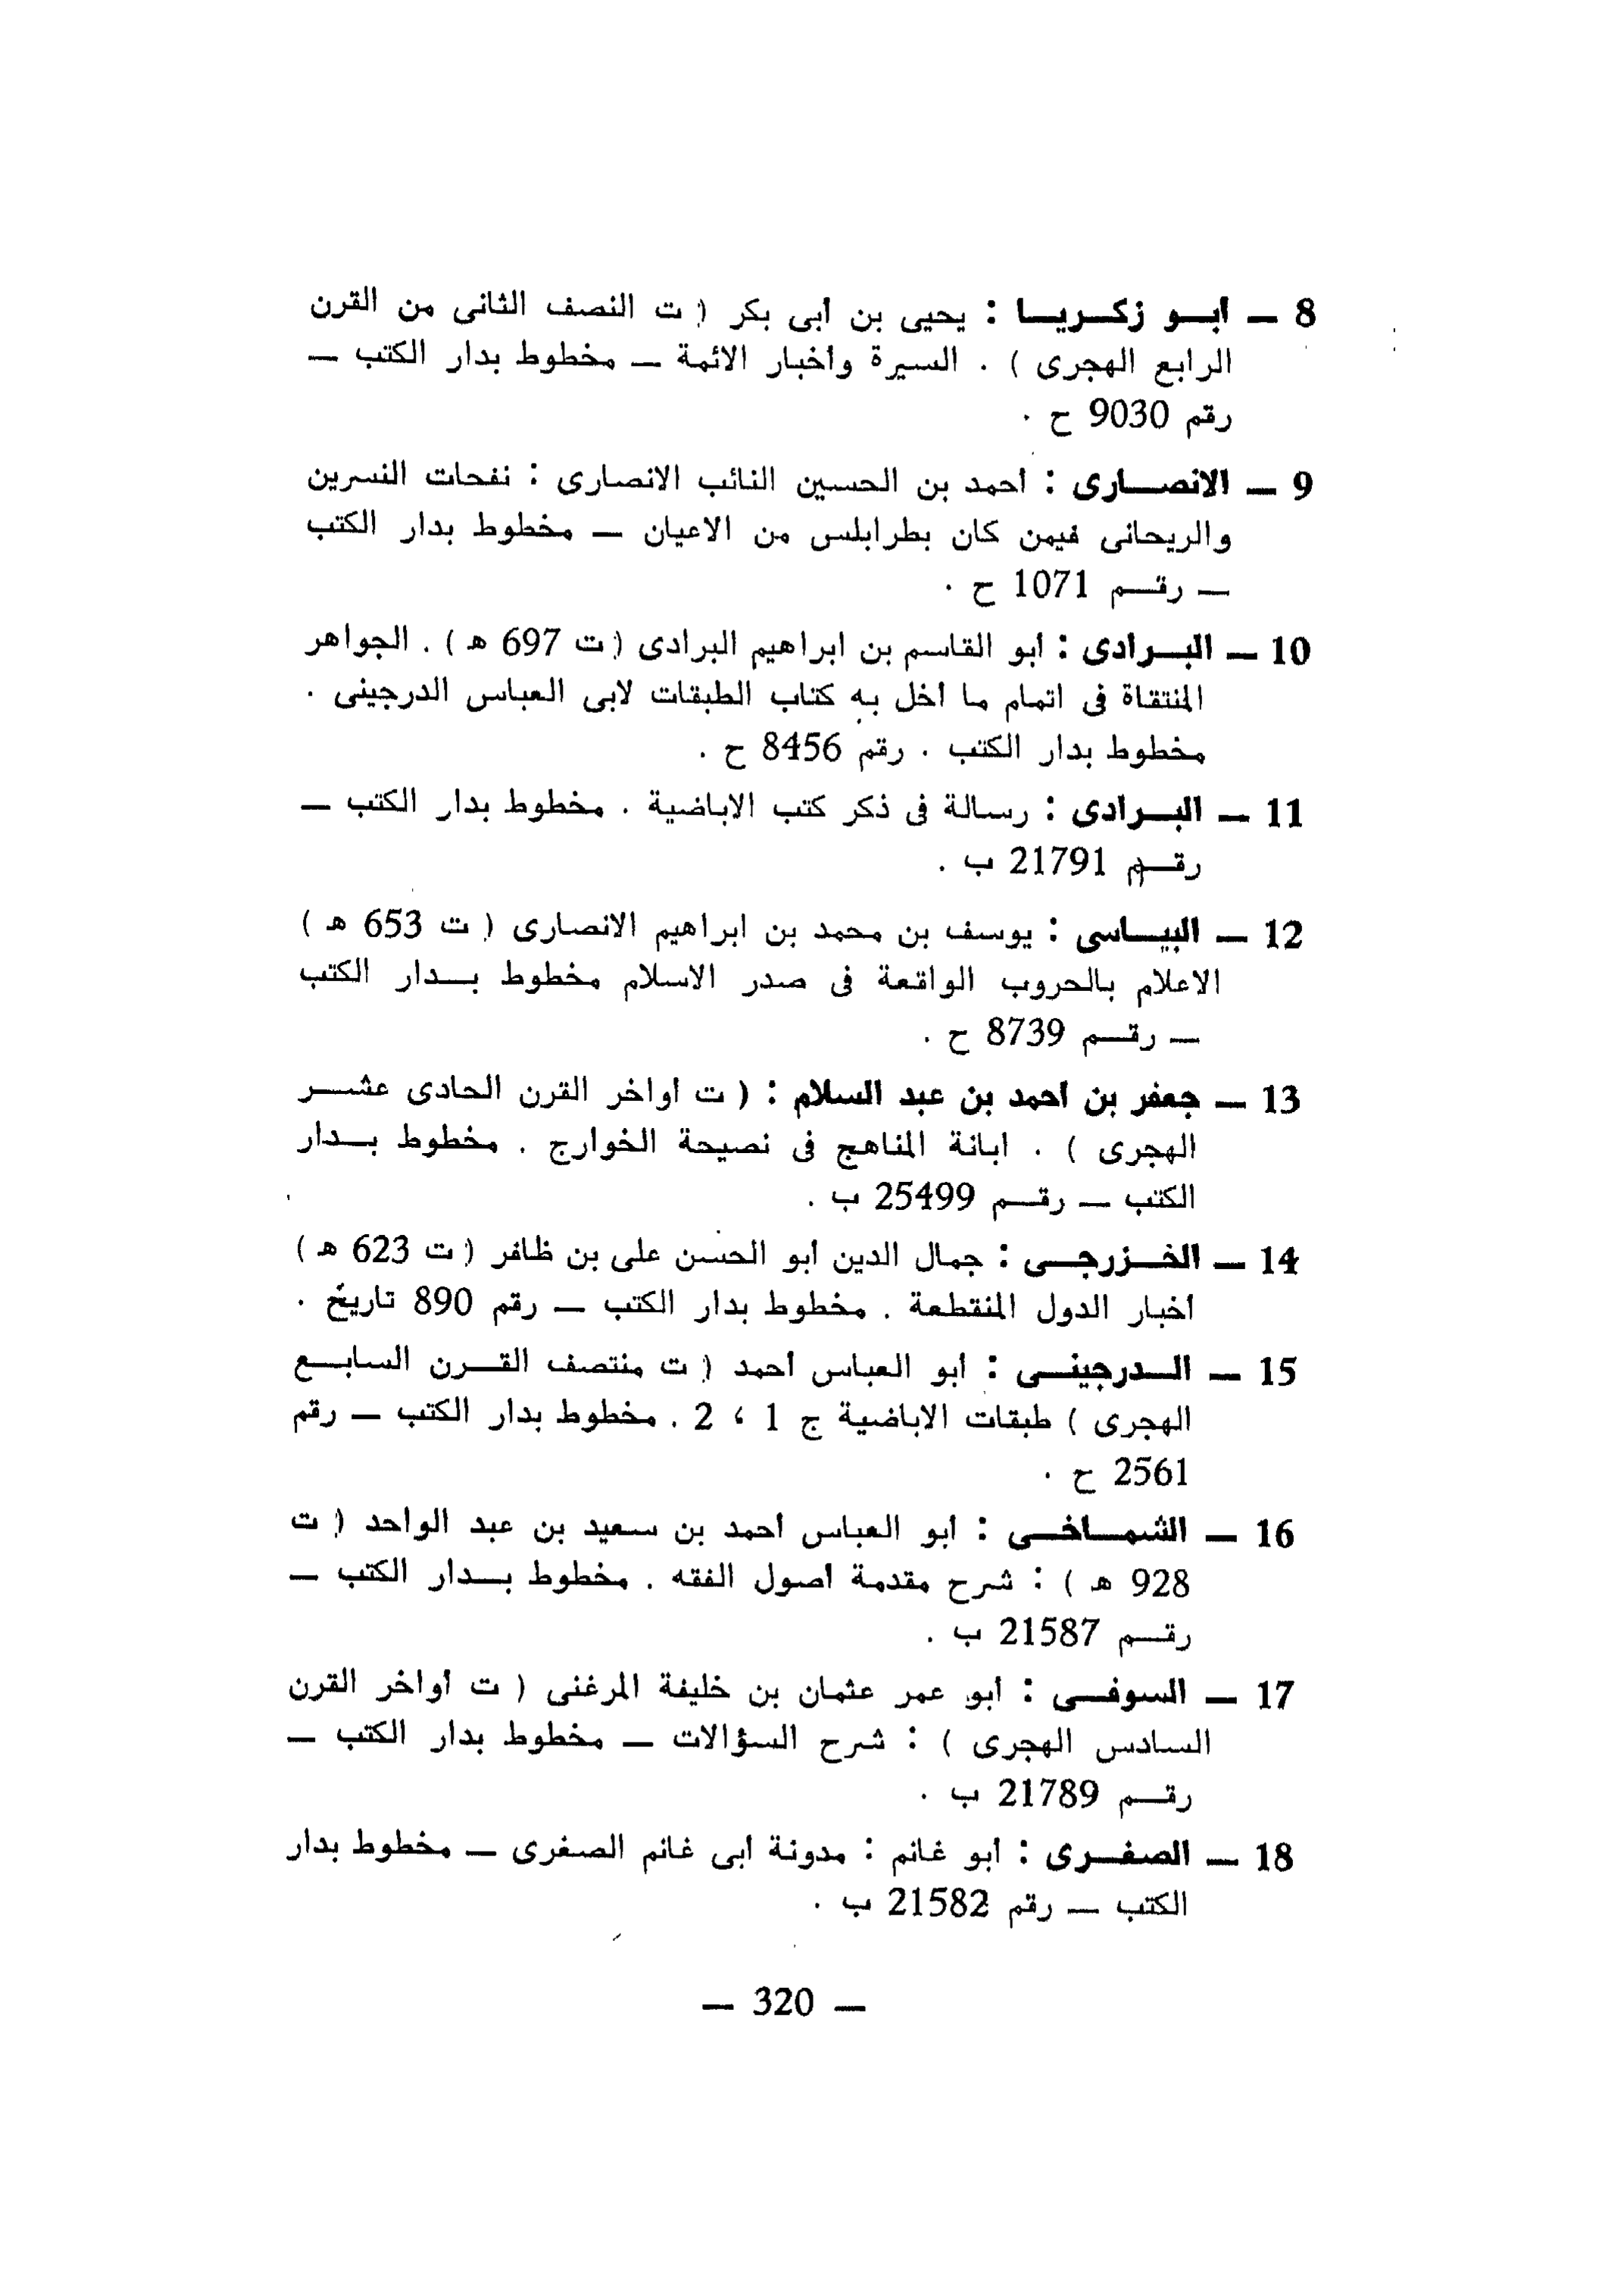 8 — ابو زكريا : يحيى بن أبى بكر ( ت النصف الثانى من القرن
الرابع الهجرى ) . السيرة وأخبار الائمة — مخطوط بدار الكتب —
رقم 9030 ح .
9 — الانصارى : أحمد بن الحسين النائب الانصارى : نفحات النسرين
والريحانى فيمن كان بطرابلس من الاعيان — مخطوط بدار الكتب
— رقم 1071 ح .
10 — البرادى : أبو القاسم بن ابراهيم البرادى ( ت 697 ه ) . الجواهر
المنتقاة فى اتمام ما أخل به كتاب الطبقات لابى العباس الدرجينى .
مخطوط بدار الكتب . رقم 8456 ح .
11 — البرادى : رسالة فى ذكر كتب الاباضية . مخطوط بدار الكتب —
رقم 21791 ب .
12 — البياسى : يوسف بن محمد بن ابراهيم الانصارى ( ت 653 ه )
الاعلام بالحروب الواقعة فى صدر الاسلام مخطوط بدار الكتب
— رقم 8739 ح .
13 — جعفر بن احمد بن عبد السلام : ( ت أواخر القرن الحادى عشر
الهجرى ) . ابانة المناهج فى نصيحة الخوارج . مخطوط بدار
الكتب — رقم 25499 ب .
14 — الخزرجى : جمال الدين أبو الحسن على بن ظافر ( ت 623 ه )
أخبار الدول المنقطعة . مخطوط بدار الكتب — رقم 890 تاريخ .
15 — الدرجينى : أبو العباس أحمد ( ت منتصف القرن السابع
الهجرى ) طبقات الاباضية ج 1 ، 2 . مخطوط بدار الكتب — رقم
2561 ح .
16 — الشماخى : أبو العباس أحمد بن سعيد بن عبد الواحد ( ت
928 ه ) : شرح مقدمة أصول الفقه . مخطوط بدار الكتب —
رقم 21587 ب .
17 — السوفى : أبو عمر عثمان بن خليفة المرغنى ( ت أواخر القرن
السادس الهجرى ) : شرح السؤالات — مخطوط بدار الكتب —
رقم 21789 ب .
18 — الصفرى : أبو غانم : مدونة أبى غانم الصغرى — مخطوط بدار
الكتب — رقم 21582 ب .
— 320 —